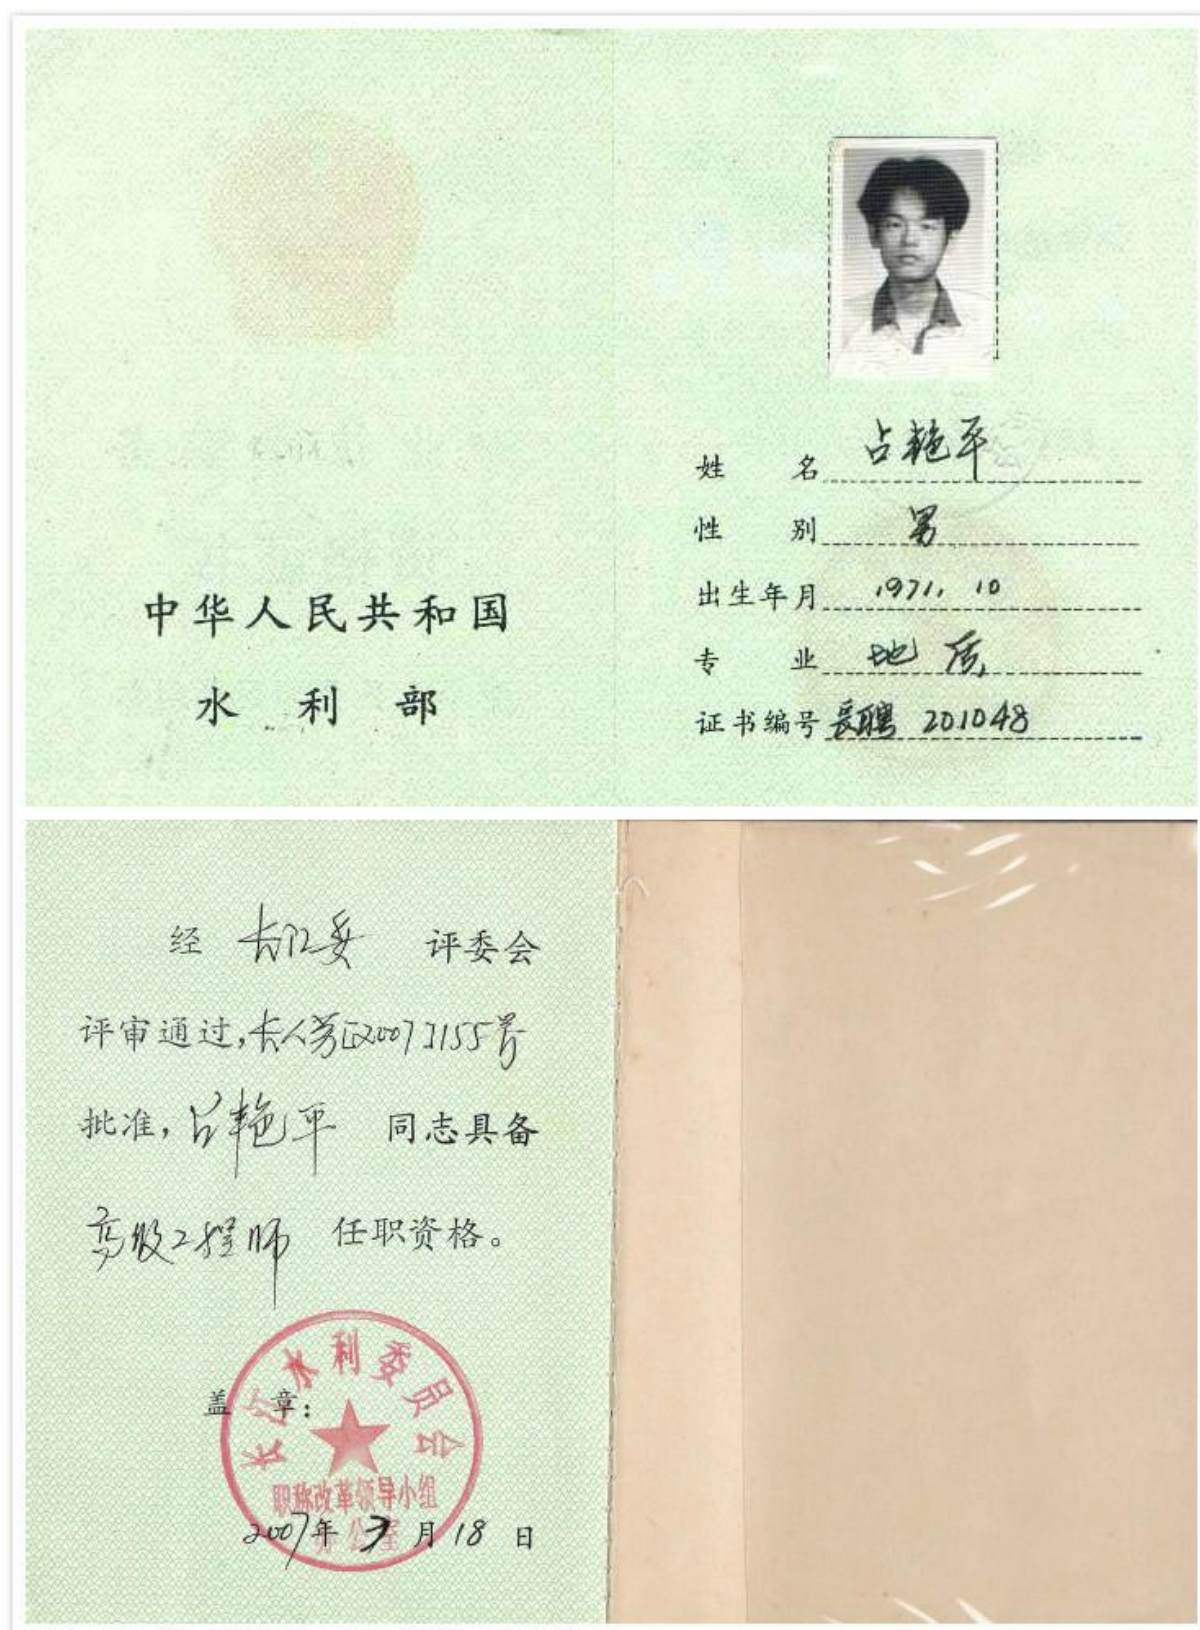 中华人民共和国
水利部
姓名 占艳平
性别 男
出生年月 1971.10
专业 地质
证书编号 长聘 201048
经 长江委 评委会
评审通过,长人劳[2007]155号
批准,占艳平 同志具备
高级工程师 任职资格。
长江水利委员会
盖章:
职称改革领导小组
办公室
2007年3月18日